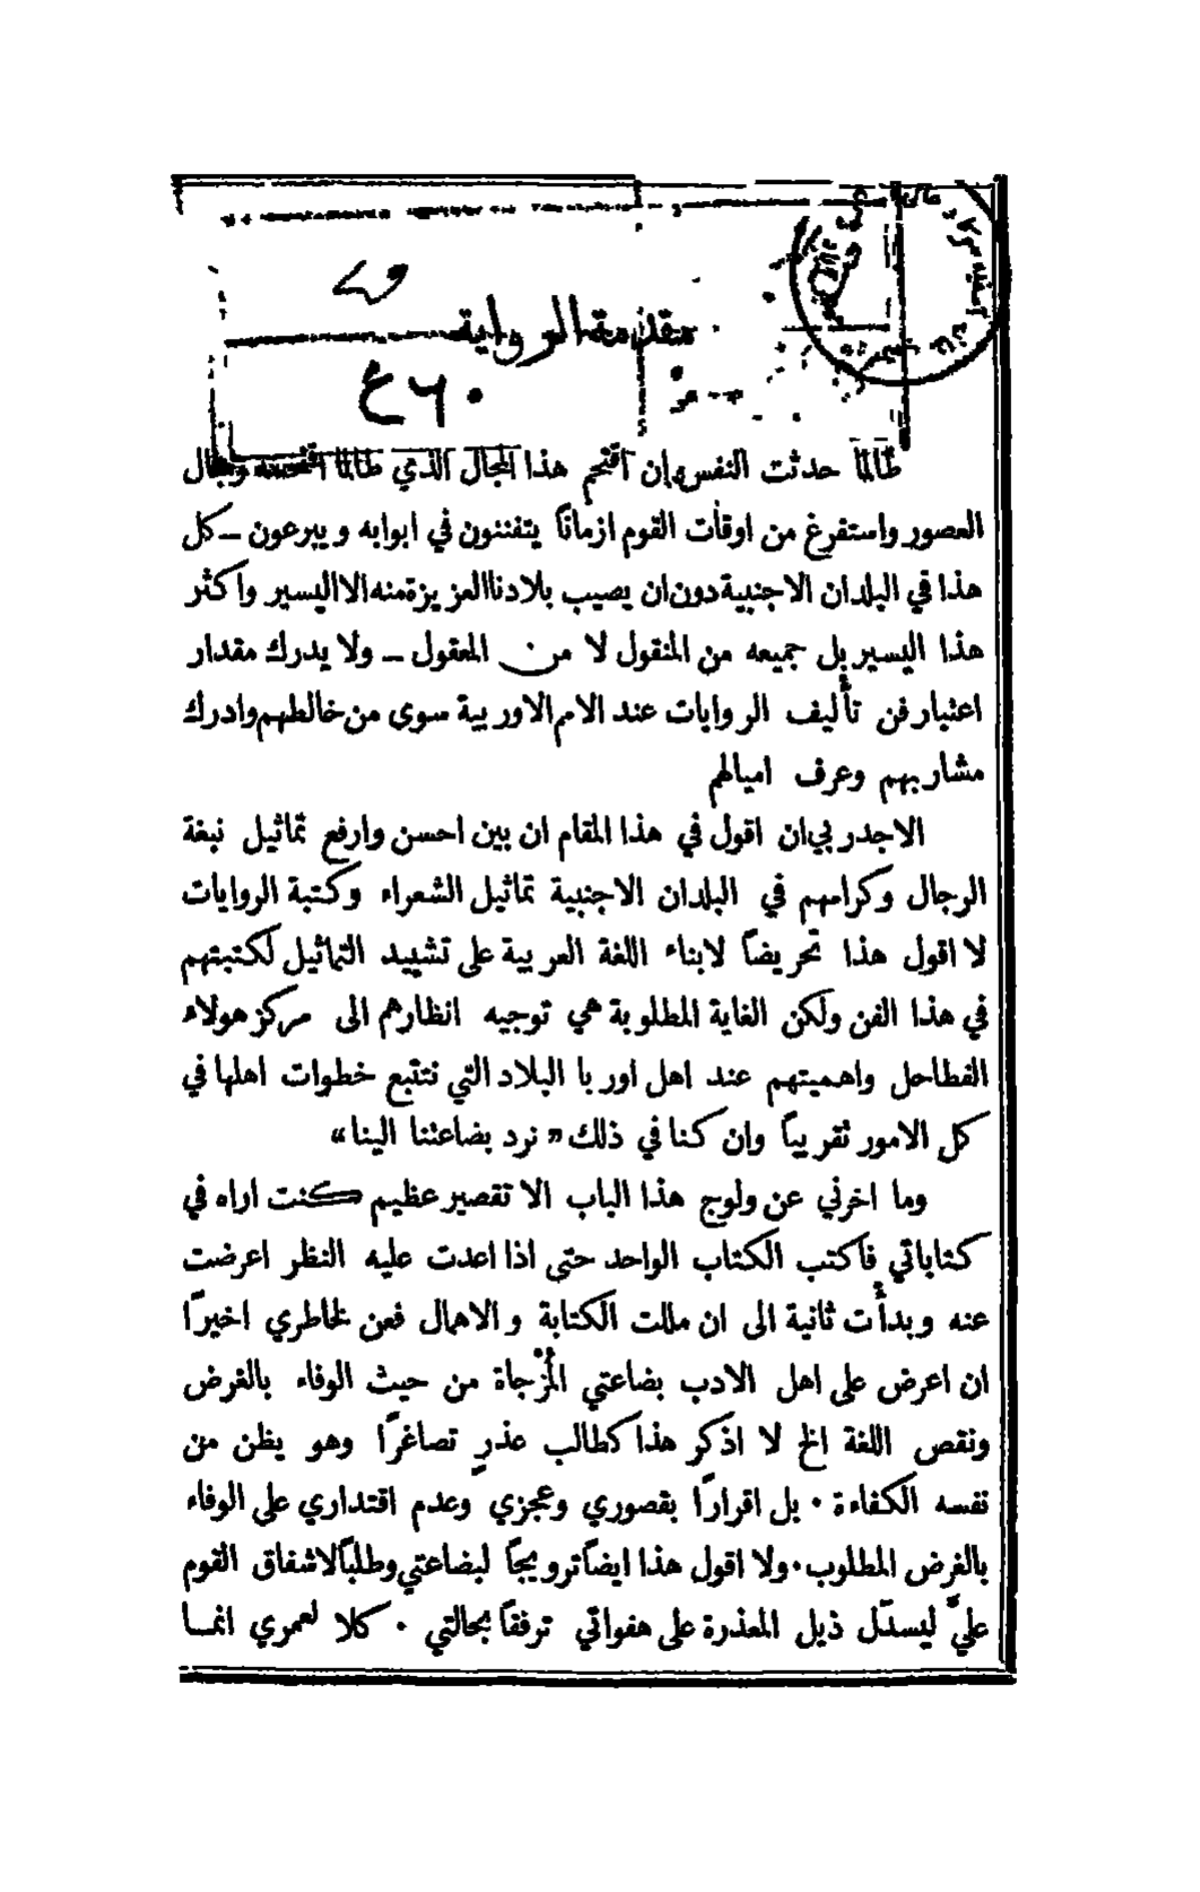 مقدمة الرواية
٤٦٠
طالما حدثت النفس ان اقتحم هذا المجال الذي طالما اقتحمته رجال
العصور واستفرغ من اوقات القوم ازماناً يتفننون في ابوابه ويبرعون — كل
هذا في البلدان الاجنبية دون ان يصيب بلادنا العزيزة منه الا اليسير واكثر
هذا اليسير بل جميعه من المنقول لا من المعقول — ولا يدرك مقدار
اعتبار فن تأليف الروايات عند الامم الاوربية سوى من خالطهم وادرك
مشاربهم وعرف اميالهم
الاجدر بي ان اقول في هذا المقام ان بين احسن وارفع تماثيل نبغة
الرجال وكرامهم في البلدان الاجنبية تماثيل الشعراء وكتبة الروايات
لا اقول هذا تحريضاً لابناء اللغة العربية على تشييد التماثيل لكتبتهم
في هذا الفن ولكن الغاية المطلوبة هي توجيه انظارهم الى مركز هولاء
الفطاحل واهميتهم عند اهل اوربا البلاد التي نتتبع خطوات اهلها في
كل الامور تقريباً وان كنا في ذلك « نرد بضاعتنا الينا »
وما اخرني عن ولوج هذا الباب الا تقصير عظيم كنت اراه في
كتاباتي فاكتب الكتاب الواحد حتى اذا اعدت عليه النظر اعرضت
عنه وبدأت ثانية الى ان مللت الكتابة والاهمال فعن لخاطري اخيراً
ان اعرض على اهل الادب بضاعتي المزْجاة من حيث الوفاء بالغرض
ونقص اللغة الخ لا اذكر هذا كطالب عذرٍ تصاغراً وهو يظن من
نفسه الكفاءة ٠ بل اقراراً بقصوري وعجزي وعدم اقتداري على الوفاء
بالغرض المطلوب ٠ ولا اقول هذا ايضاً ترويجاً لبضاعتي وطلباً لاشفاق القوم
عليَّ ليسدَل ذيل المعذرة على هفواتي ترفقاً بحالتي ٠ كلا لعمري انما